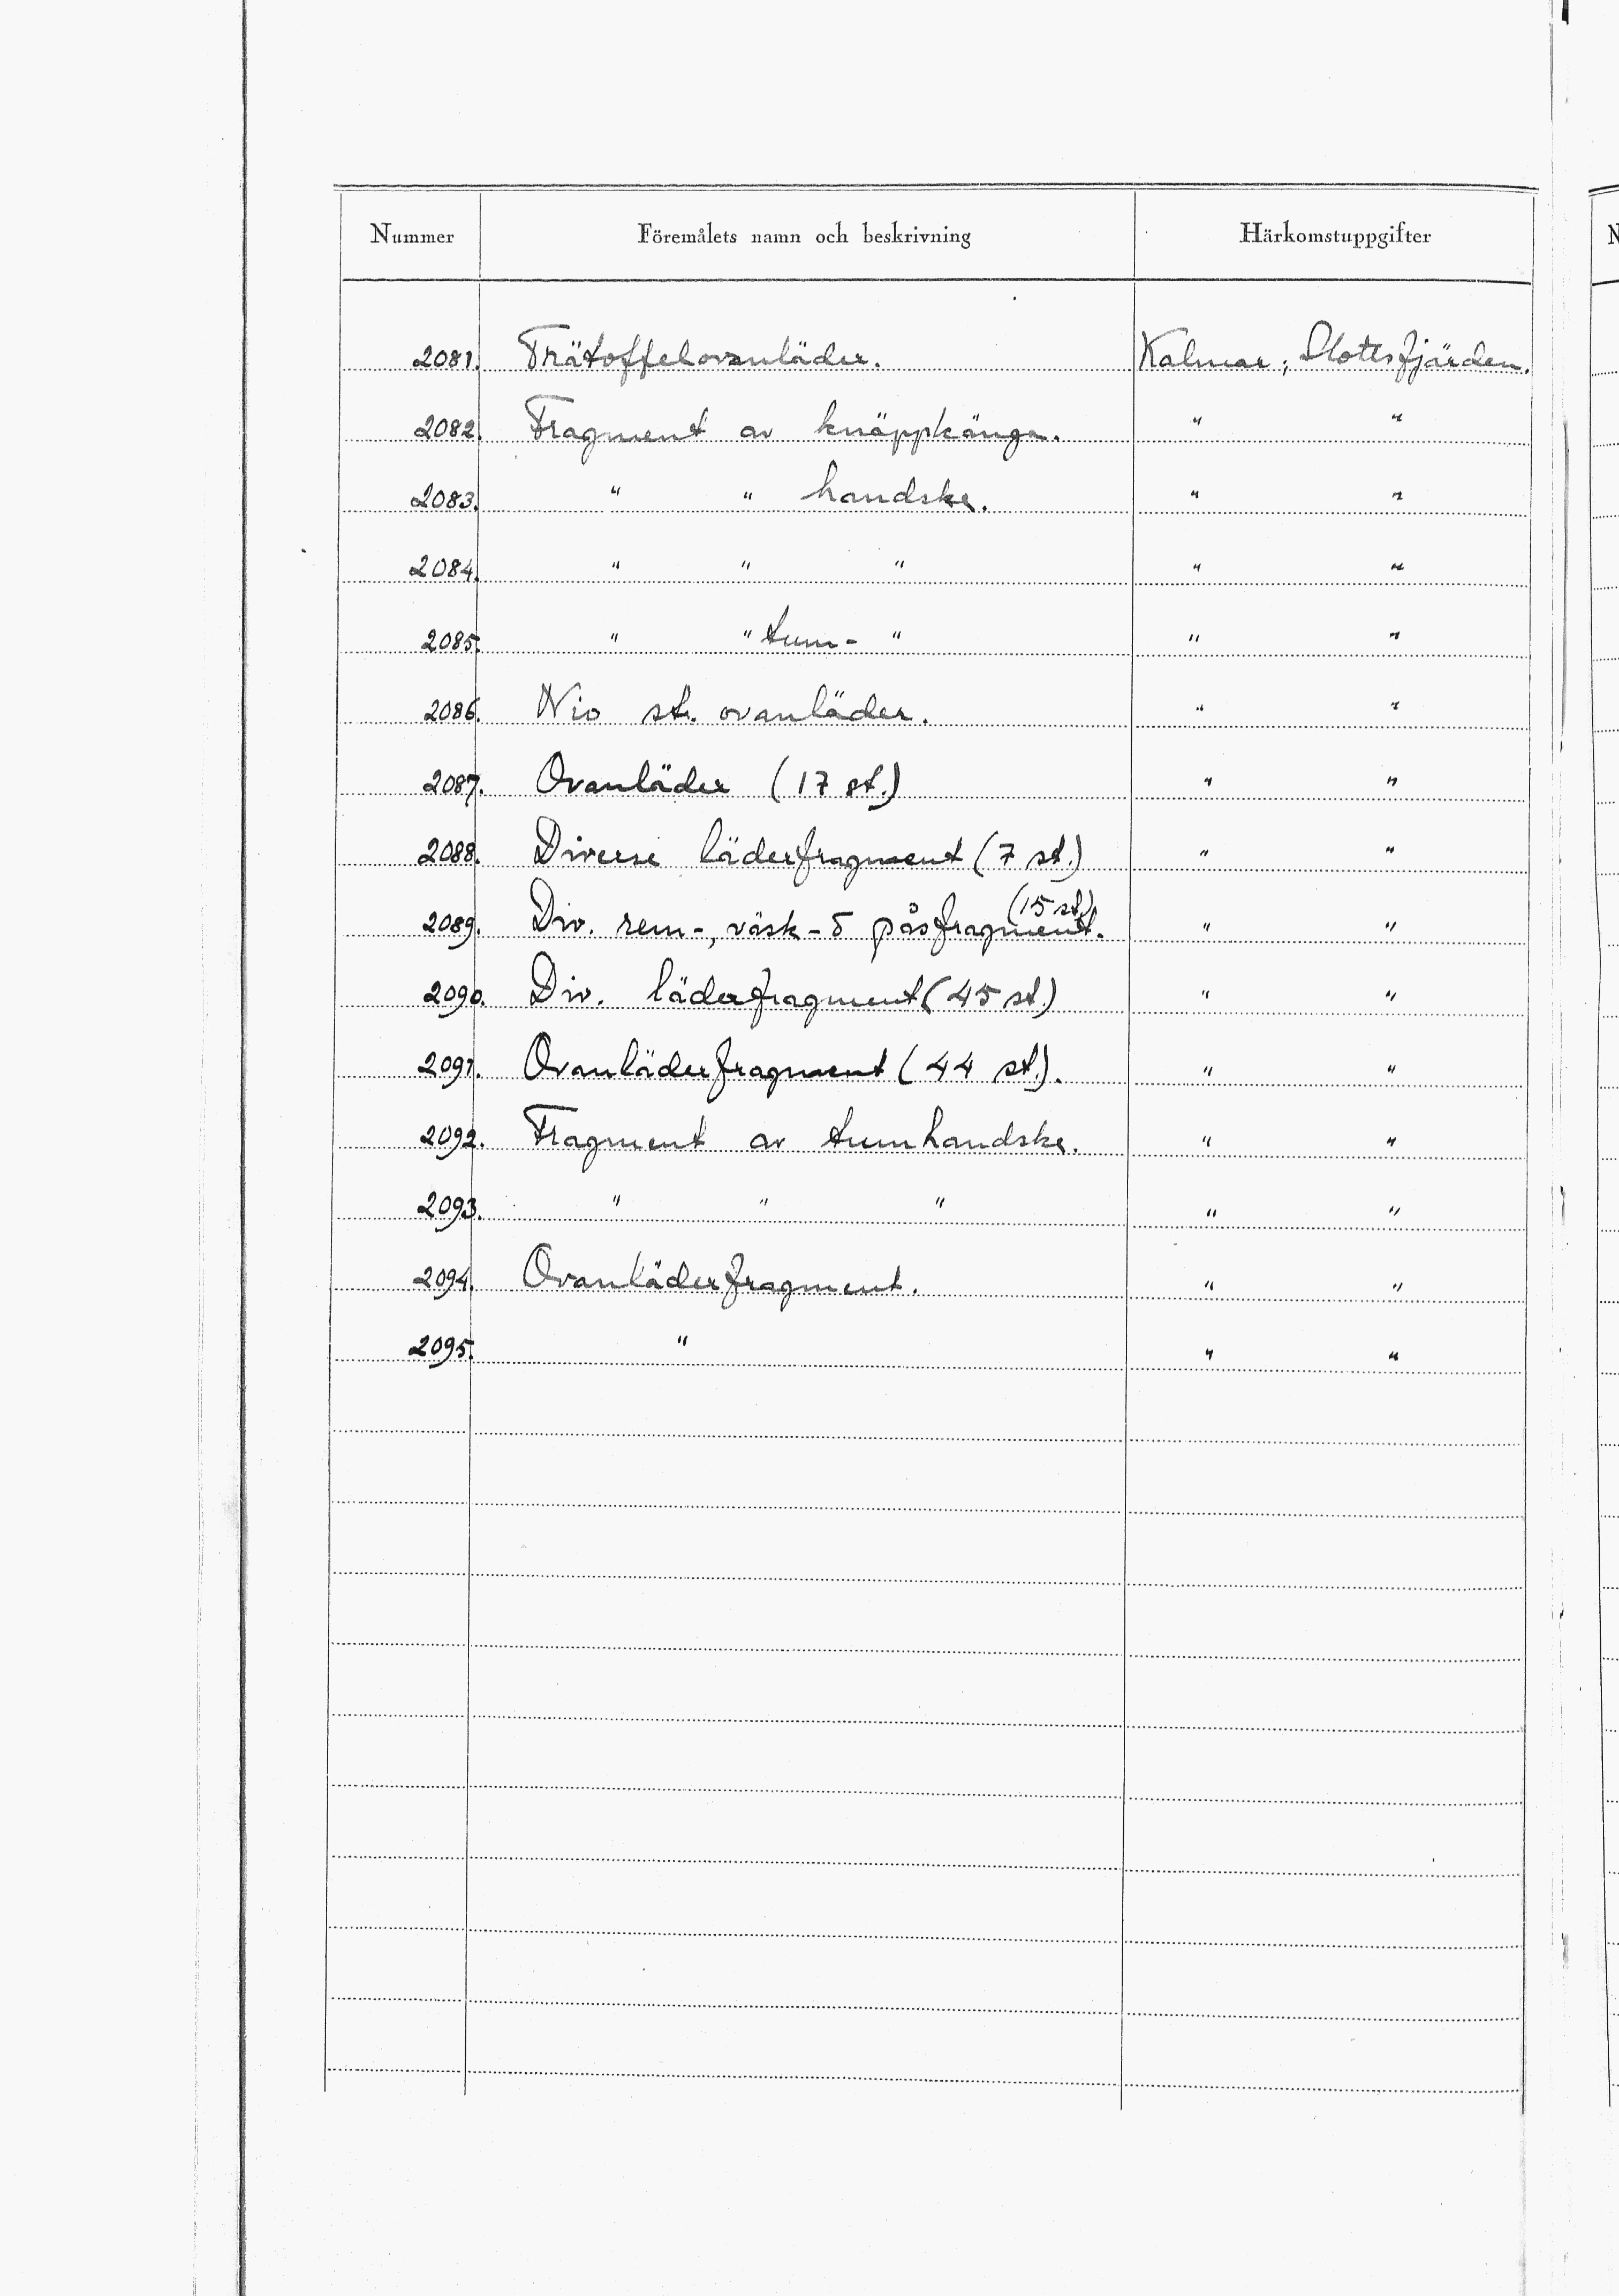 Nummer Föremålets namn och beskrivning Härkomstuppgifter
2081. Trätoffelovanläder. Kalmar; Slottsfjärden.
2082. Fragment av knäppkänga. " "
2083. " " handske. " "
2084. " " " " "
2085. " " tum- " " "
2086. Nio st. ovanläder. " "
2087. Ovanläder (17 st.) " "
2088. Diverse läderfragment (7 st.) " "
(15 st.)
2089. Div. rem-, väsk- o påsfragment. " "
2090. Div. läderfragment (45 st.) " "
2091. Ovanläderfragment (44 st.). " "
2092. Fragment av tumhandske. " "
2093. " " " " "
2094. Ovanläderfragment. " "
2095. " " "